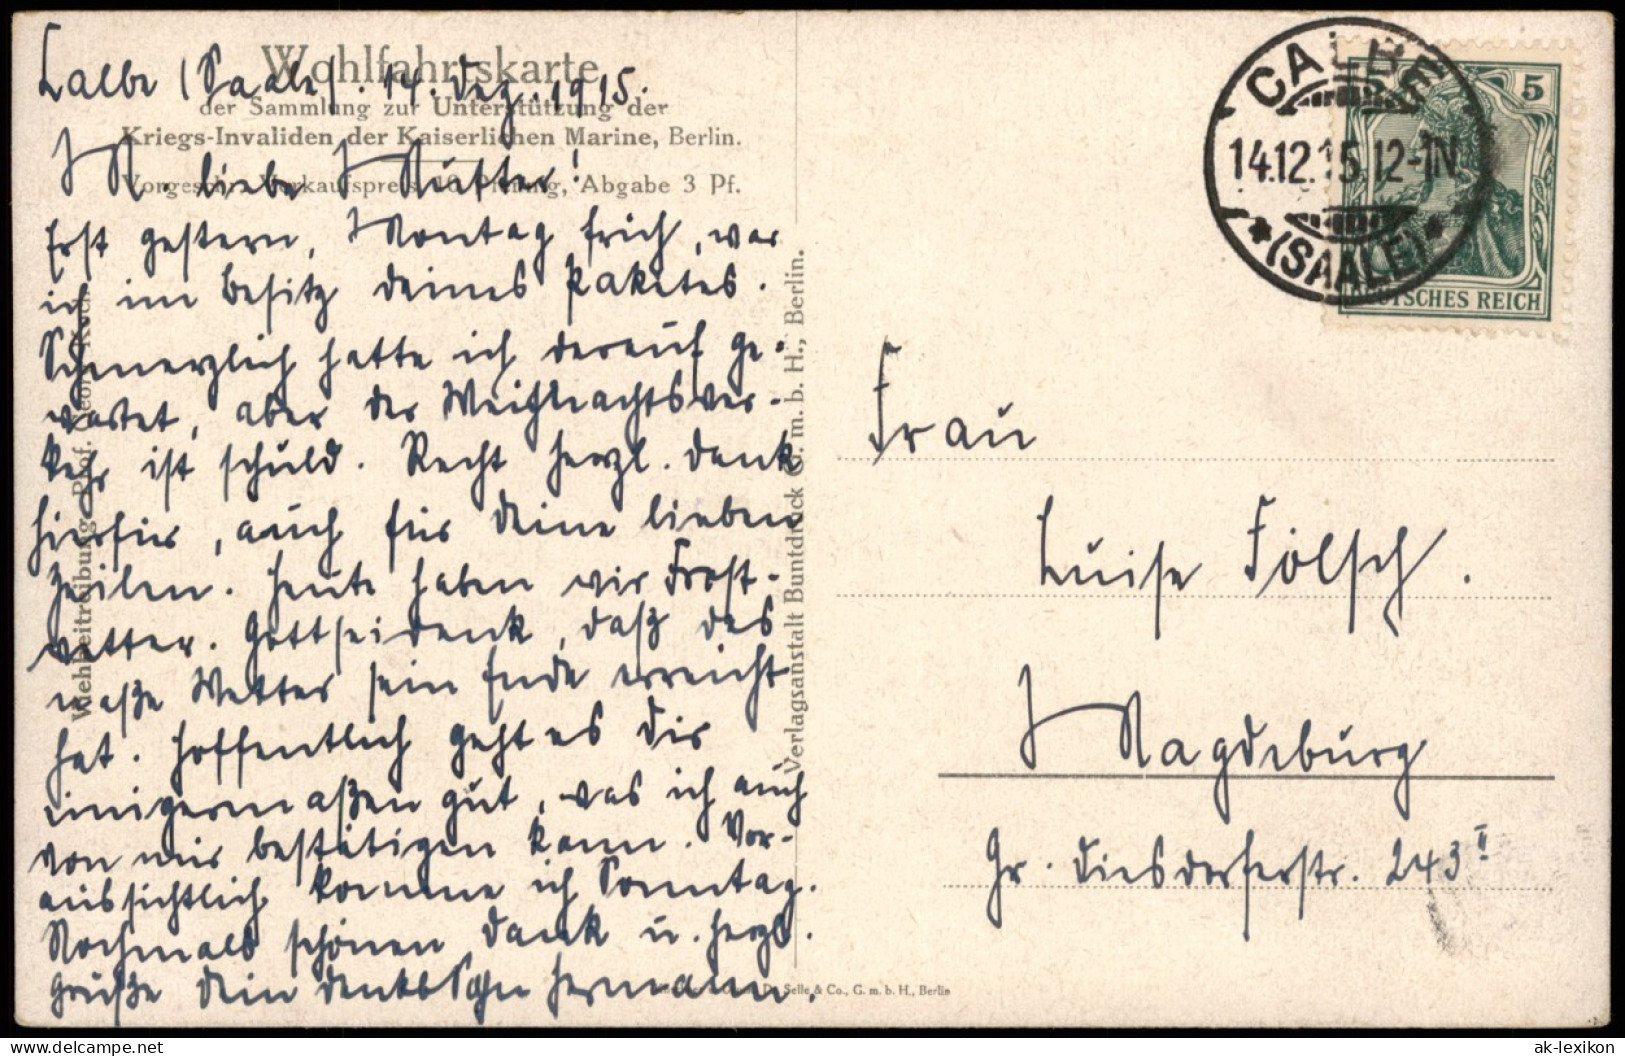 Wohlfahrtskarte
der Sammlung zur Unterstützung der
Kriegs-Invaliden der Kaiserlichen Marine, Berlin.
Vorgeschr. Verkaufspreis 10 Pfennig, Abgabe 3 Pf.
Calbe (Saale). 14. Dez. 1915.
M. liebe Mutter!
Erst gestern, Montag früh, war
ich im Besitz deines Paketes.
Schmerzlich hatte ich darauf ge-
wartet, aber der Weihnachtsver-
kehr ist schuld. Recht herzl. Dank
hierfür, auch für deine lieben
Zeilen. Heute haben wir Frost-
wetter. Gottseidank, daß das
naße Wetter sein Ende erreicht
hat. Hoffentlich geht es dir
einigermaßen gut, was ich auch
von mir bestätigen kann. Vor-
aussichtlich komme ich Sonntag.
Nochmals schönen Dank u. herzl.
Grüße Dein dankb. Sohn Hermann.
Verlagsanstalt Buntdruck G. m. b. H., Berlin.
Selle & Co., G. m. b. H., Berlin
CALBE
14.12.15.12-1N
*(SAALE)*
5
DEUTSCHES REICH
Frau
Luise Fölsch.
Magdeburg
Gr. Diesdorferstr. 243 II
www.delcampe.net
ak-lexikon